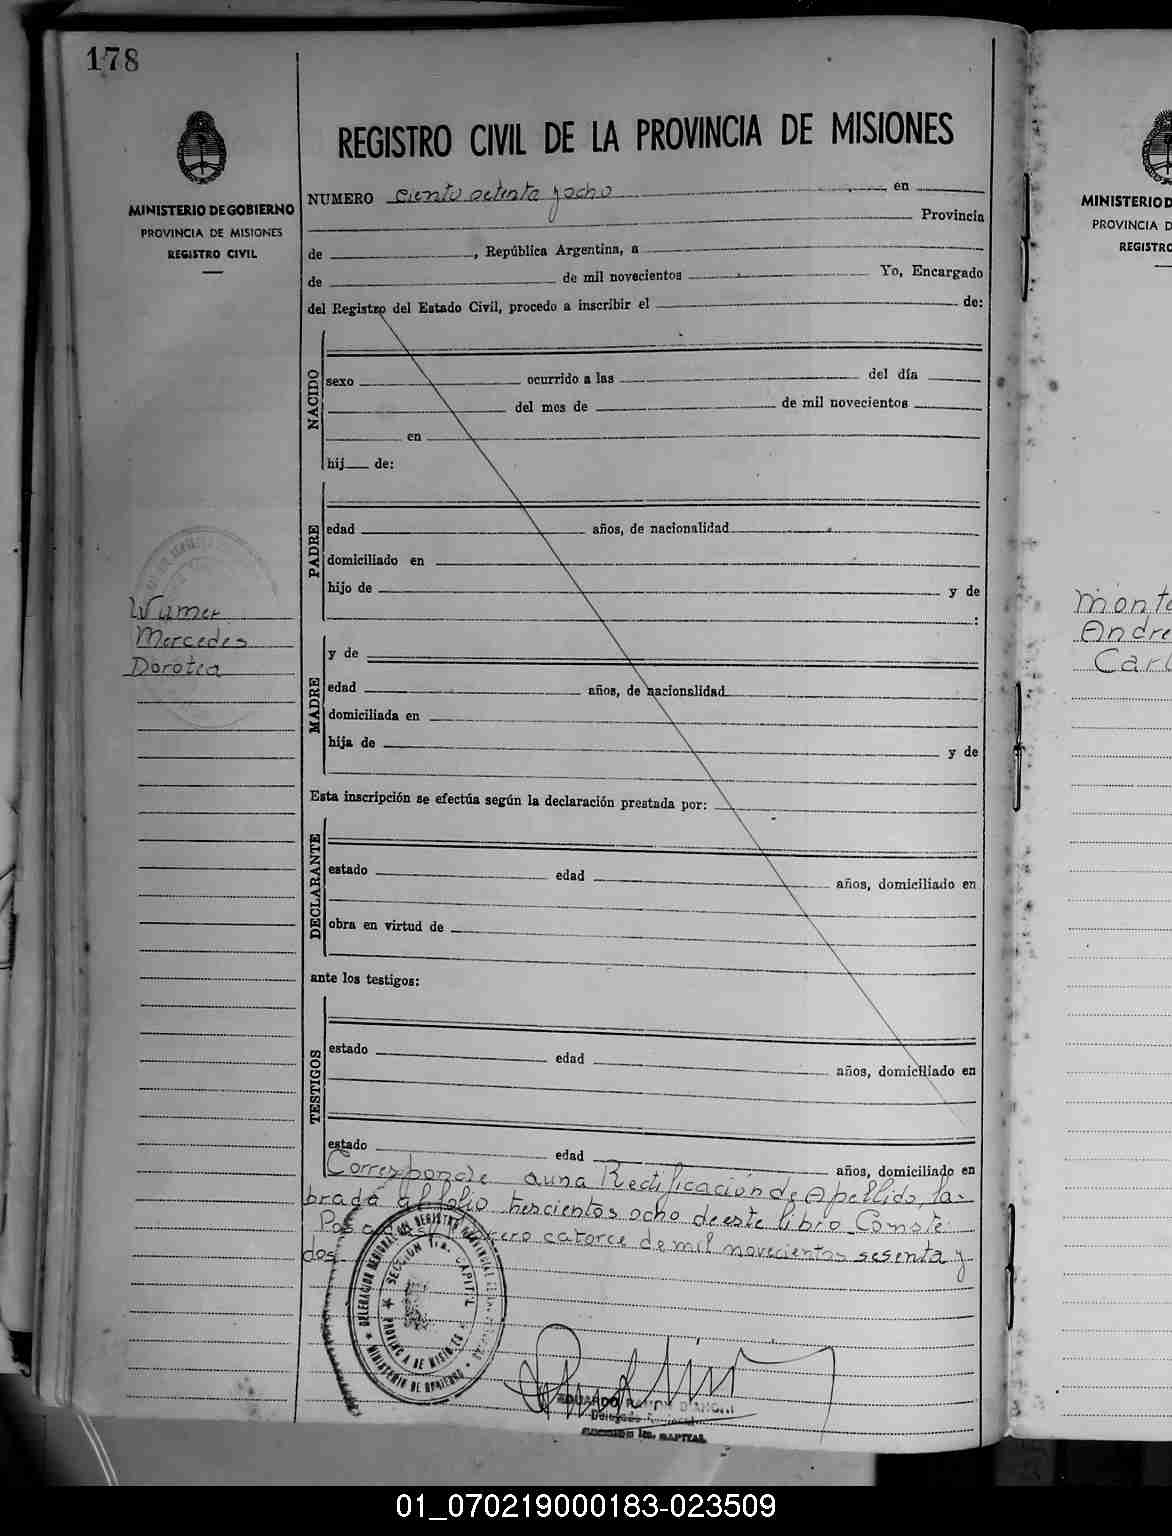 178
REGISTRO CIVIL DE LA PROVINCIA DE MISIONES
MINISTERIO DE GOBIERNO
PROVINCIA DE MISIONES
REGISTRO CIVIL
NUMERO ciento setenta y ocho en
Provincia
de , República Argentina, a
de de mil novecientos Yo, Encargado
del Registro del Estado Civil, procedo a inscribir el de:
NACIDO
sexo ocurrido a las del día
del mes de de mil novecientos
en
hij de:
PADRE
edad años, de nacionalidad
domiciliado en
hijo de y de
:
Mercedes
Dorotea
MADRE
y de
edad años, de nacionalidad
domiciliada en
hija de y de
Esta inscripción se efectúa según la declaración prestada por:
DECLARANTE
estado edad años, domiciliado en
obra en virtud de
ante los testigos:
TESTIGOS
estado edad años, domiciliado en
estado edad años, domiciliado en
Corresponde a una Rectificación de Apellido, la-
brada al folio trescientos ocho de este libro. Conste
catorce de mil novecientos sesenta y
dos
DELEGACION REGIONAL DEL REGISTRO PROVINCIAL
SECCION 1ra. CAPITAL
PROVINCIA DE MISIONES
MINISTERIO DE GOBIERNO
EDUARDO
SECCION 1ra. CAPITAL
MINISTERIO D
PROVINCIA D
REGISTRO
Mont
Andre
Carl
01_070219000183-023509